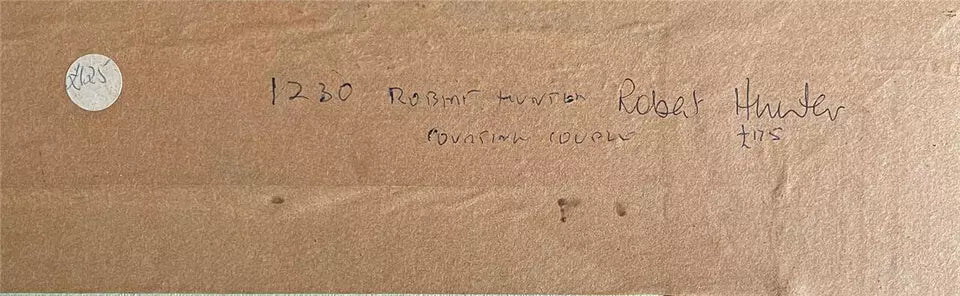 £125
1230 ROBERT HUNTER Robert Hunter
COURTING COUPLE £175